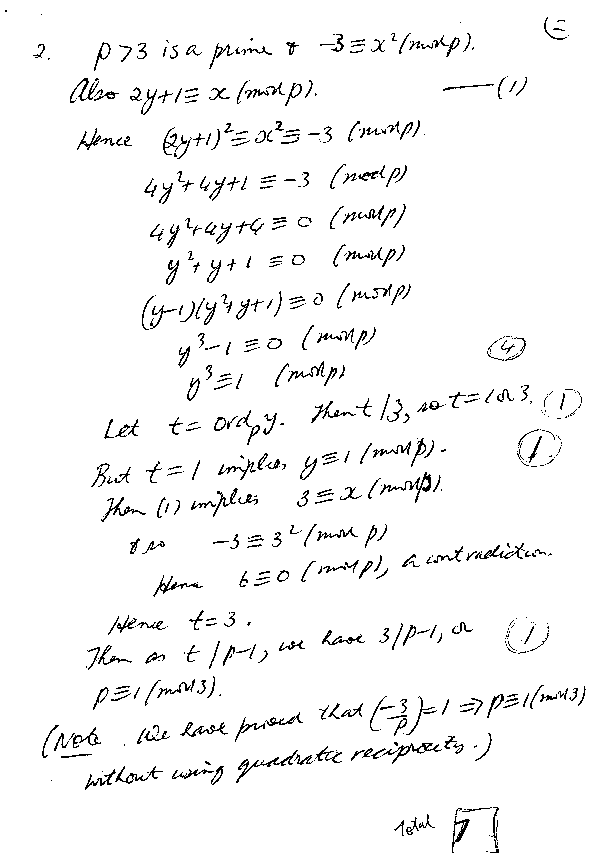 (E
2. p>3 is a prime & -3≡x²(mod p).
Also 2y+1≡x (mod p). —(1)
Hence (2y+1)²≡x²≡-3 (mod p).
4y²+4y+1≡-3 (mod p)
4y²+4y+4≡0 (mod p)
y²+y+1≡0 (mod p)
(y-1)(y²+y+1)≡0 (mod p)
y³-1≡0 (mod p)
y³≡1 (mod p) (4)
Let t=ord_p y. Then t|3, so t=1 or 3. (1)
But t=1 implies y≡1 (mod p). (1)
Then (1) implies 3≡x (mod p)
& so -3≡3² (mod p)
Hence 6≡0 (mod p), a contradiction.
Hence t=3.
Then as t|p-1, we have 3|p-1, or (1)
p≡1 (mod 3).
(Note. We have proved that (-3/p)=1 ⇒ p≡1 (mod 3)
without using quadratic reciprocity.)
Total 7